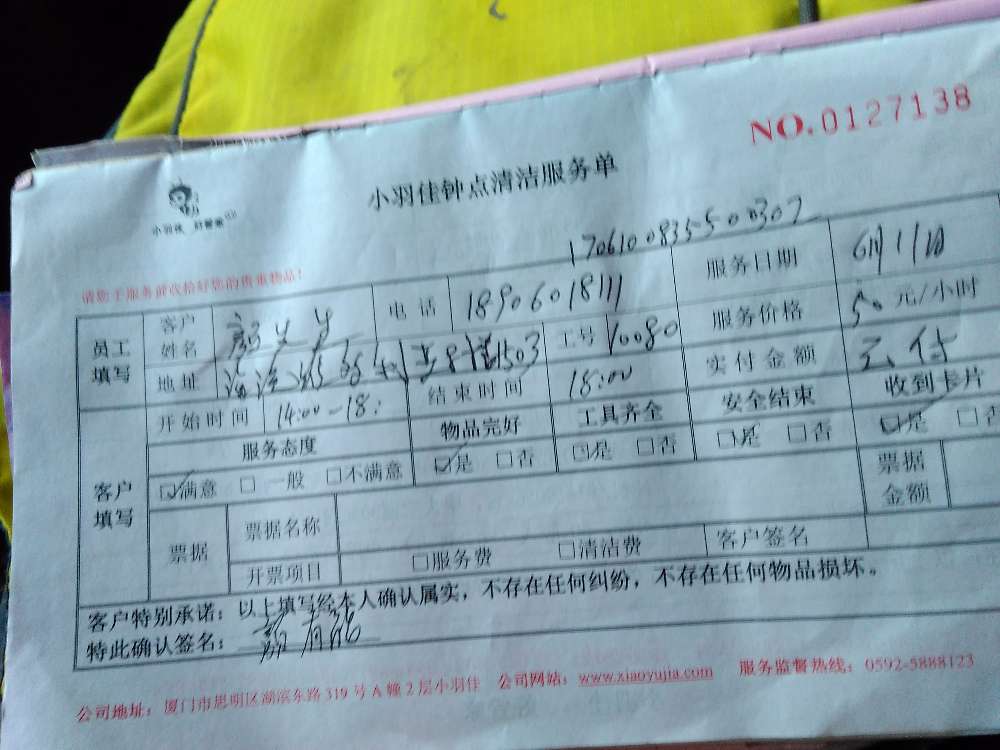 NO.0127138
小羽佳钟点清洁服务单
小羽佳 好管家
1706100835500302
请您于服务前收拾好您的贵重物品!
员工填写 客户姓名 电话 18906018111 服务日期 6月11日
地址 1503 工号 10080 服务价格 50 元/小时
开始时间 14:00-18: 结束时间 18:00 实付金额 云付
客户填写 服务态度 物品完好 工具齐全 安全结束 收到卡片
☑满意 □一般 □不满意 ☑是 □否 ☑是 □否 ☑是 □否 ☑是 □否
票据 票据名称 票据金额
开票项目 □服务费 □清洁费 客户签名
客户特别承诺:以上填写经本人确认属实,不存在任何纠纷,不存在任何物品损坏。
特此确认签名:
公司地址:厦门市思明区湖滨东路319号A幢2层小羽佳 公司网站:www.xiaoyujia.com 服务监督热线:0592-5888123